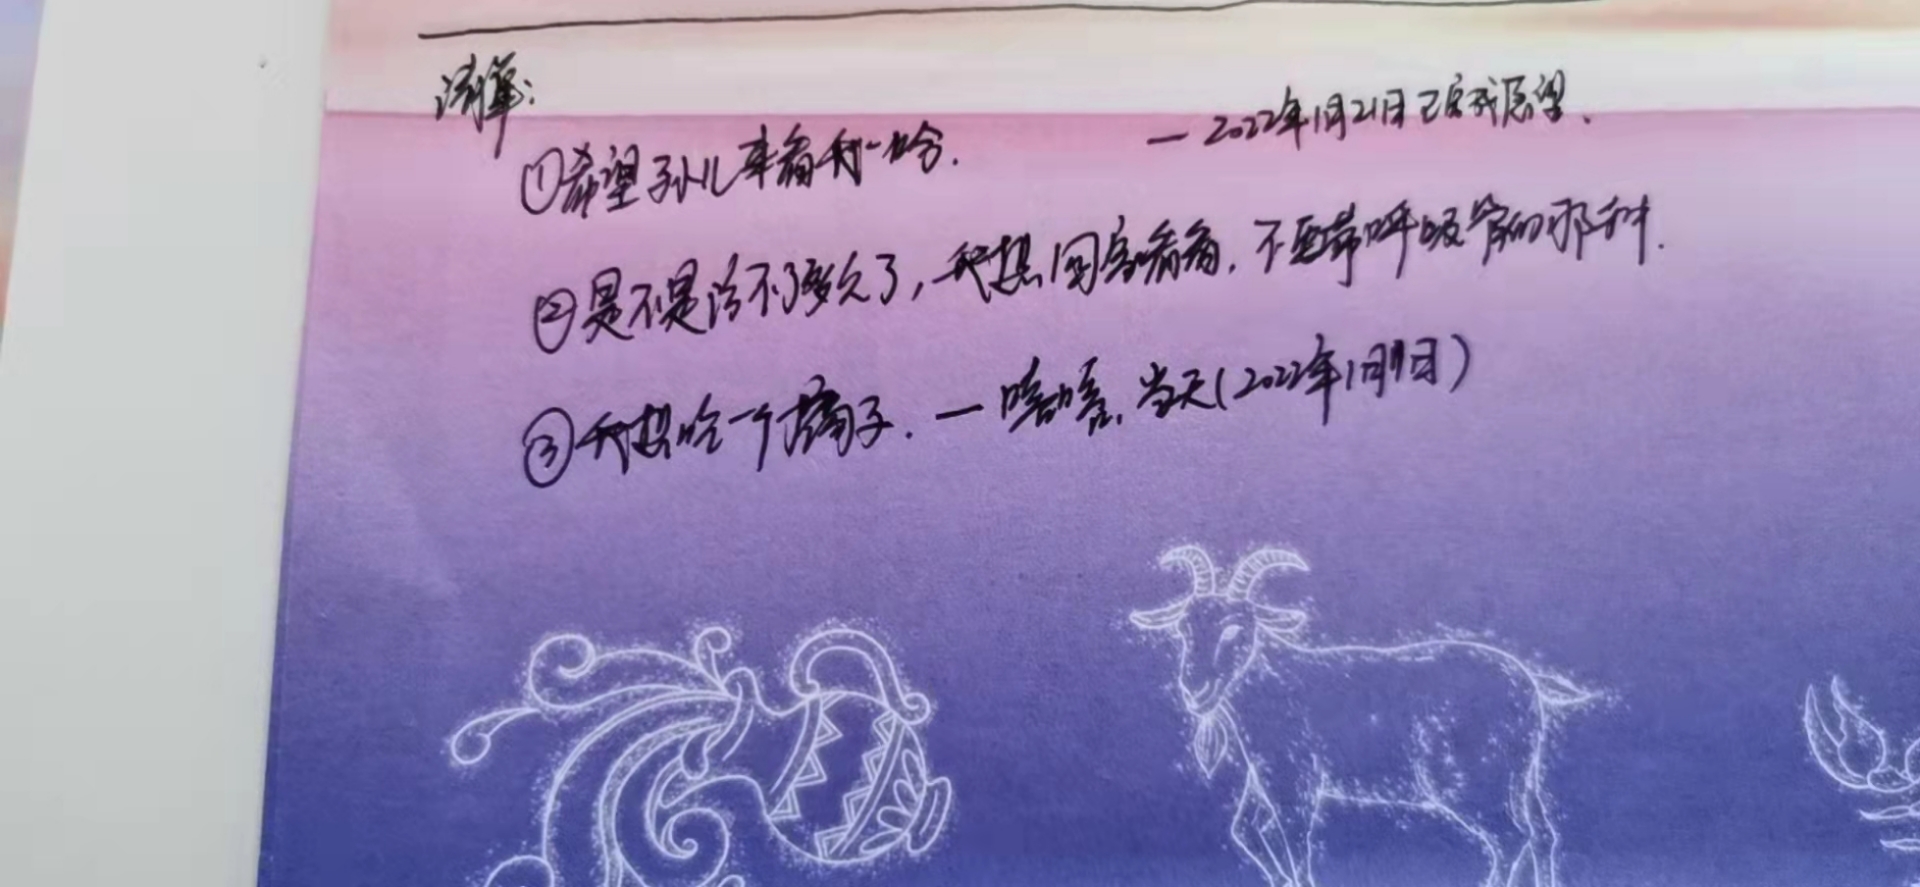 清单:
①希望孙儿来看我一哈. — 2022年1月21日已完成愿望.
②是不是治不了多久了,我想回家看看,不要带呼吸管的那种.
③我想吃一个橘子. — 嘻嘻,当天(2022年1月19日)